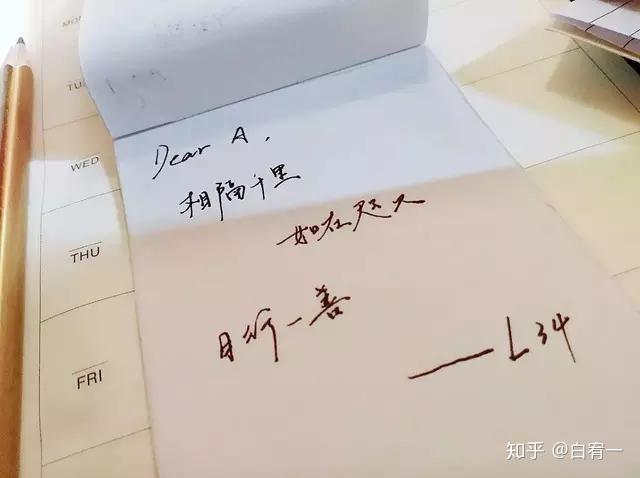 MON
TUE
WED
THU
FRI
Dear A,
相隔千里
如在咫尺
日行一善
——L34
知乎 @白宥一